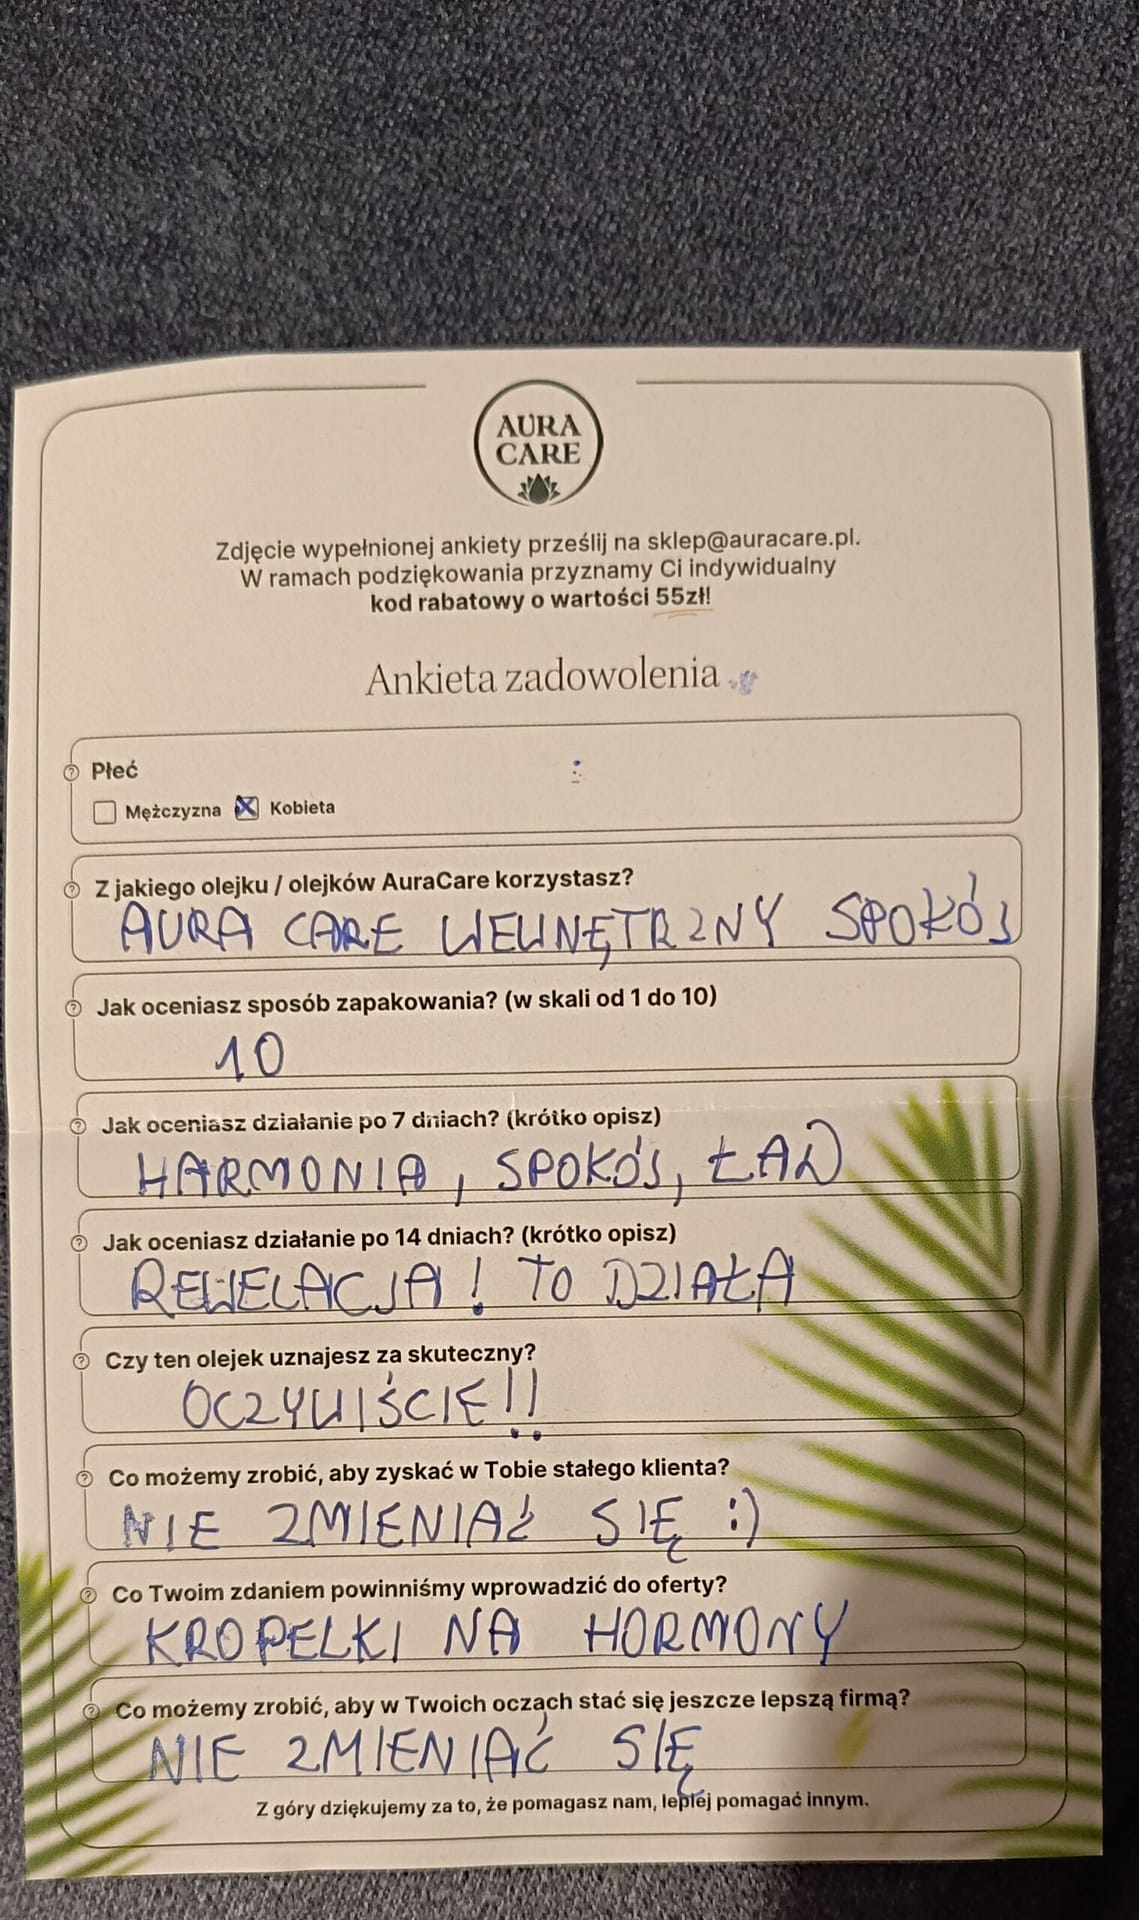 AURA
CARE
Zdjęcie wypełnionej ankiety prześlij na sklep@auracare.pl.
W ramach podziękowania przyznamy Ci indywidualny
kod rabatowy o wartości 55zł!
Ankieta zadowolenia
Płeć
Mężczyzna Kobieta
Z jakiego olejku / olejków AuraCare korzystasz?
AURA CARE WEWNĘTRZNY SPOKÓJ
Jak oceniasz sposób zapakowania? (w skali od 1 do 10)
10
Jak oceniasz działanie po 7 dniach? (krótko opisz)
HARMONIA, SPOKÓJ, ŁAD
Jak oceniasz działanie po 14 dniach? (krótko opisz)
REWELACJA! TO DZIAŁA
Czy ten olejek uznajesz za skuteczny?
OCZYWIŚCIE!!
Co możemy zrobić, aby zyskać w Tobie stałego klienta?
NIE ZMIENIAĆ SIĘ :)
Co Twoim zdaniem powinniśmy wprowadzić do oferty?
KROPELKI NA HORMONY
Co możemy zrobić, aby w Twoich oczach stać się jeszcze lepszą firmą?
NIE ZMIENIAĆ SIĘ
Z góry dziękujemy za to, że pomagasz nam, lepiej pomagać innym.